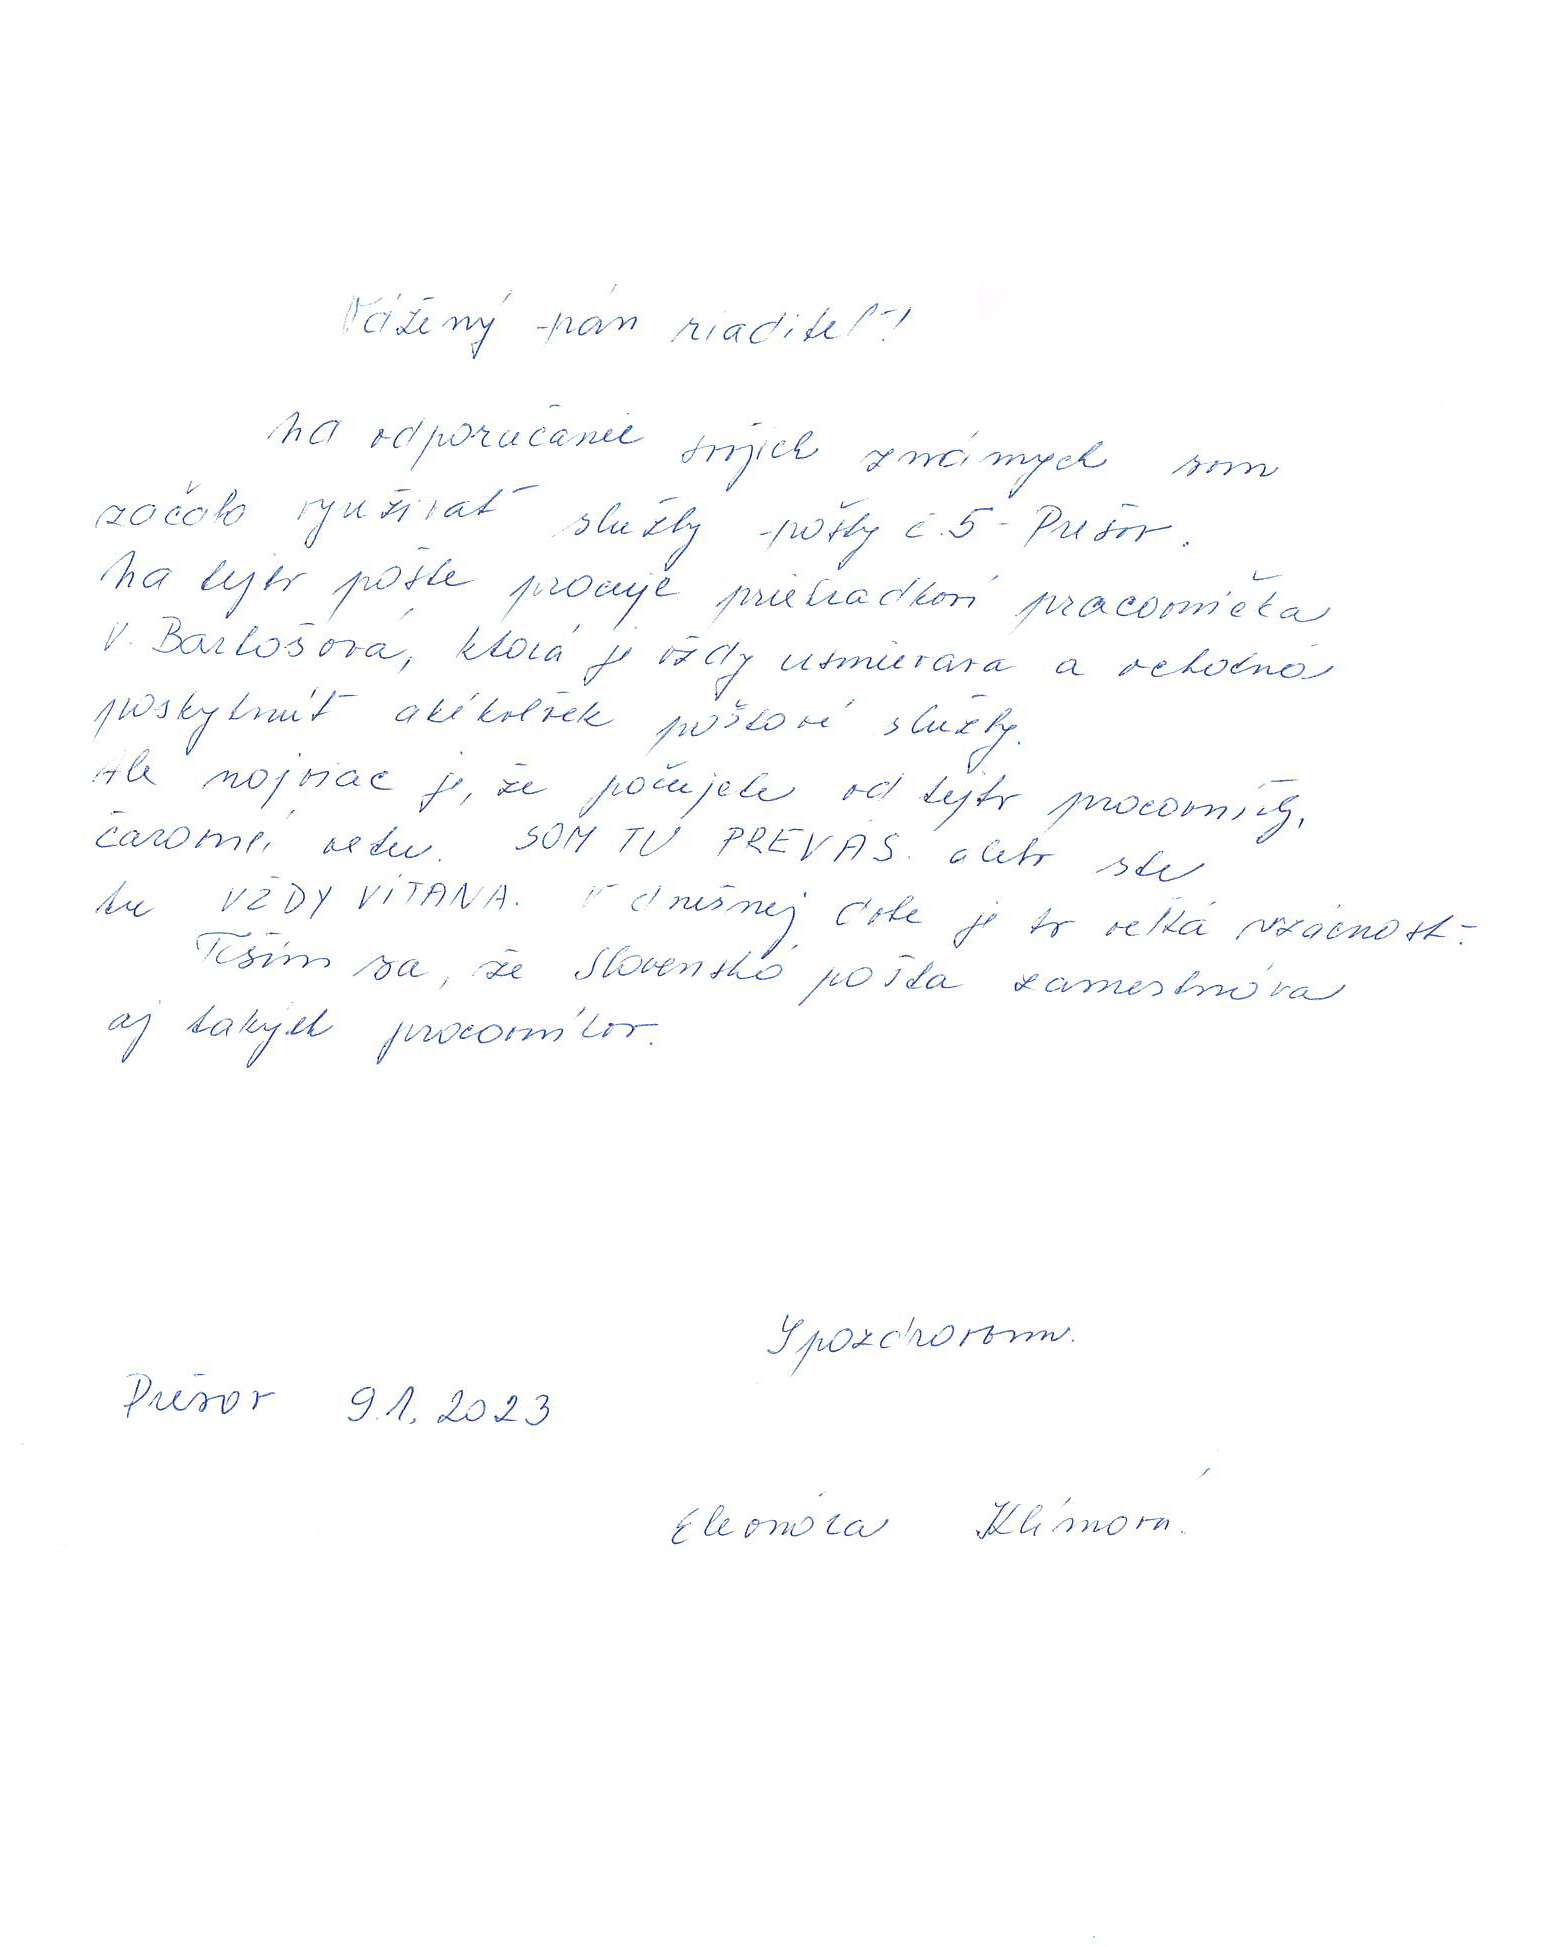 Vážený pán riaditeľ!
Na odporúčanie svojich známych som
začala využívať služby pošty č. 5 - Prešov.
Na tejto pošte pracuje priehradková pracovníčka
V. Bartošová, ktorá je vždy usmievavá a ochotná
poskytnúť akékoľvek poštové služby.
Ale najviac je, že počujete od tejto pracovníčky,
čarovnú vetu. SOM TU PRE VÁS. alebo ste
tu VŽDY VÍTANÁ. V dnešnej dobe je to veľká vzácnosť.
Teším sa, že Slovenská pošta zamestnáva
aj takých pracovníkov.
S pozdravom.
Prešov 9.1.2023
Eleonóra Klímová.